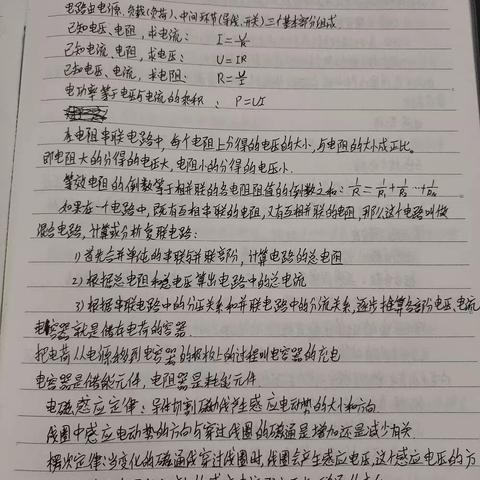 电路由电源、负载(负荷)、中间环节(导线、开关)三个基本部分组成.
已知电压、电阻,求电流: I=U/R
已知电流、电阻,求电压: U=IR
已知电压、电流,求电阻: R=U/I
电功率等于电压与电流的乘积: P=UI
在电阻串联电路中,每个电阻上分得的电压的大小,与电阻的大小成正比.
即电阻大的分得的电压大,电阻小的分得的电压小.
等效电阻的倒数等于相并联的各电阻阻值的倒数之和: 1/R=1/R₁+1/R₂…+1/Rn
如果在一个电路中,既有互相串联的电阻,又有互相并联的电阻,那么这个电路叫做
混合电路,计算或分析复联电路:
1)首先合并单纯的串联与并联部份,计算电路的总电阻
2)根据总电阻和总电压算出电路中的总电流
3)根据串联电路中的分压关系和并联电路中的分流关系,逐步推算各部份电压、电流
电容器就是储存电荷的容器.
把电荷从电源移到电容器的极板上的过程叫电容器的充电
电容器是储能元件,电阻器是耗能元件.
电磁感应定律:导体切割磁力线产生感应电动势的大小和方向.
线圈中感应电动势的方向与穿过线圈的磁通是增加还是减少有关.
楞次定律:当变化的磁通线穿过线圈时,线圈会产生感应电压,这个感应电压的方